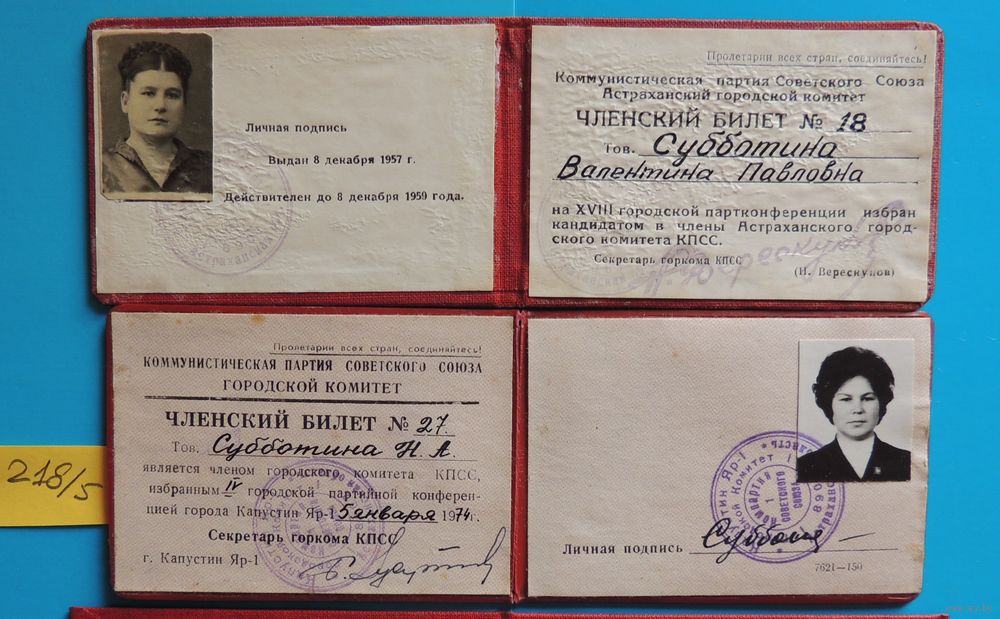 Личная подпись
Выдан 8 декабря 1957 г.
Действителен до 8 декабря 1959 года.
Астраханская
Пролетарии всех стран, соединяйтесь!
Коммунистическая партия Советского Союза
Астраханский городской комитет
ЧЛЕНСКИЙ БИЛЕТ № 18
Тов. Субботина
Валентина Павловна
на XVIII городской партконференции избран
кандидатом в члены Астраханского город-
ского комитета КПСС.
Секретарь горкома КПСС
(Н. Верескунов)
Пролетарии всех стран, соединяйтесь!
КОММУНИСТИЧЕСКАЯ ПАРТИЯ СОВЕТСКОГО СОЮЗА
ГОРОДСКОЙ КОМИТЕТ
ЧЛЕНСКИЙ БИЛЕТ № 27.
Тов. Субботина Н. А.
является членом городского комитета КПСС,
избранным IV городской партийной конферен-
цией города Капустин Яр-1 5 января 1974 г.
Секретарь горкома КПСС
г. Капустин Яр-1
Личная подпись
7621—150
218/5